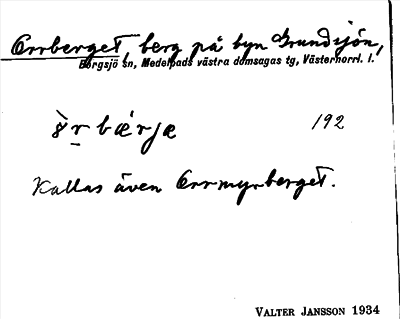 Orrberget, berg på byn Grundsjön,
Bergsjö sn, Medelpads västra domsagas tg, Västernorrl. l.
192
Kallas även Orrmyrberget.
VALTER JANSSON 1934